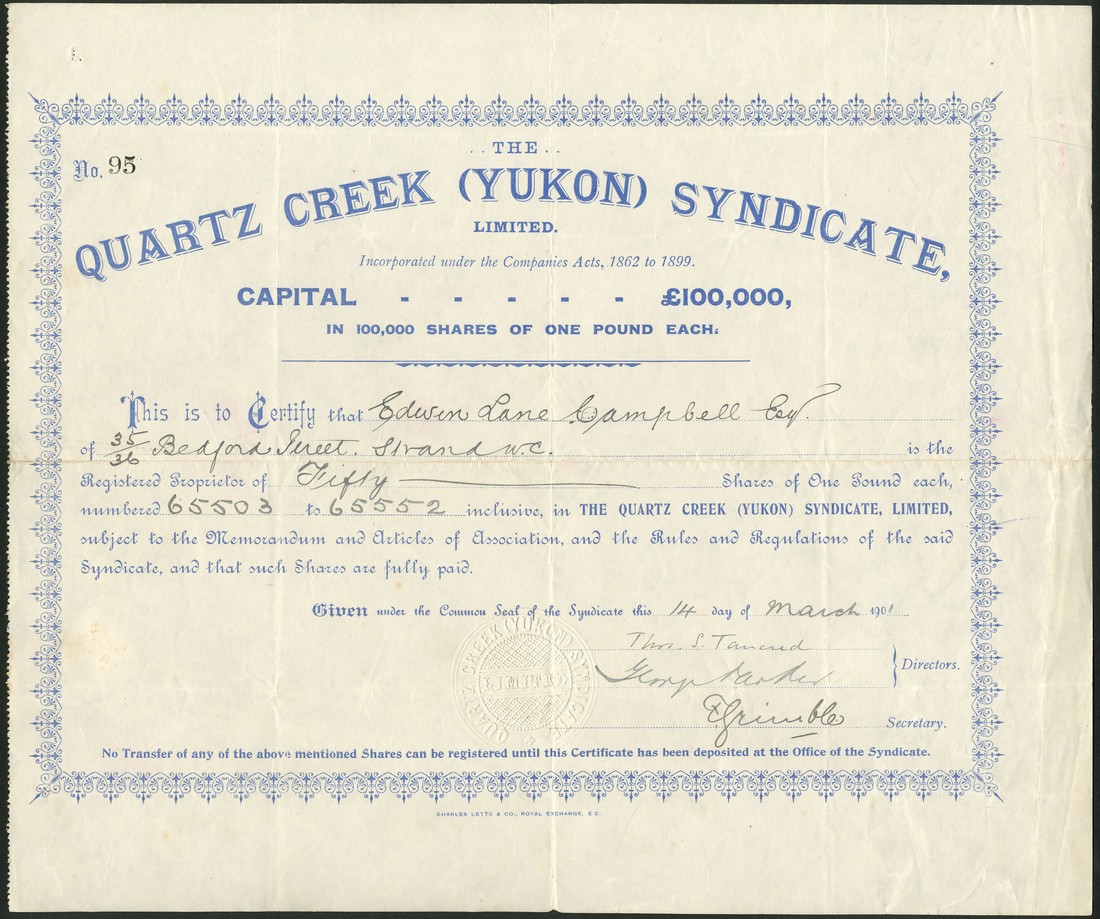 No. 95
. . THE . .
QUARTZ CREEK (YUKON) SYNDICATE,
LIMITED.
Incorporated under the Companies Acts, 1862 to 1899.
CAPITAL - - - - - £100,000,
IN 100,000 SHARES OF ONE POUND EACH.
This is to Certify that Edwin Lane Campbell Esq.
of 35/36 Bedford Street. Strand W.C. is the
Registered Proprietor of Fifty Shares of One Pound each,
numbered 65503 to 65552 inclusive, in THE QUARTZ CREEK (YUKON) SYNDICATE, LIMITED,
subject to the Memorandum and Articles of Association, and the Rules and Regulations of the said
Syndicate, and that such Shares are fully paid.
Given under the Common Seal of the Syndicate this 14 day of March 1901
Thos. S. Tancred
George
Directors.
QUARTZ CREEK (YUKON) SYNDICATE
LIMITED
Grimble
Secretary.
No Transfer of any of the above mentioned Shares can be registered until this Certificate has been deposited at the Office of the Syndicate.
CHARLES LETTS & CO., ROYAL EXCHANGE, E.C.